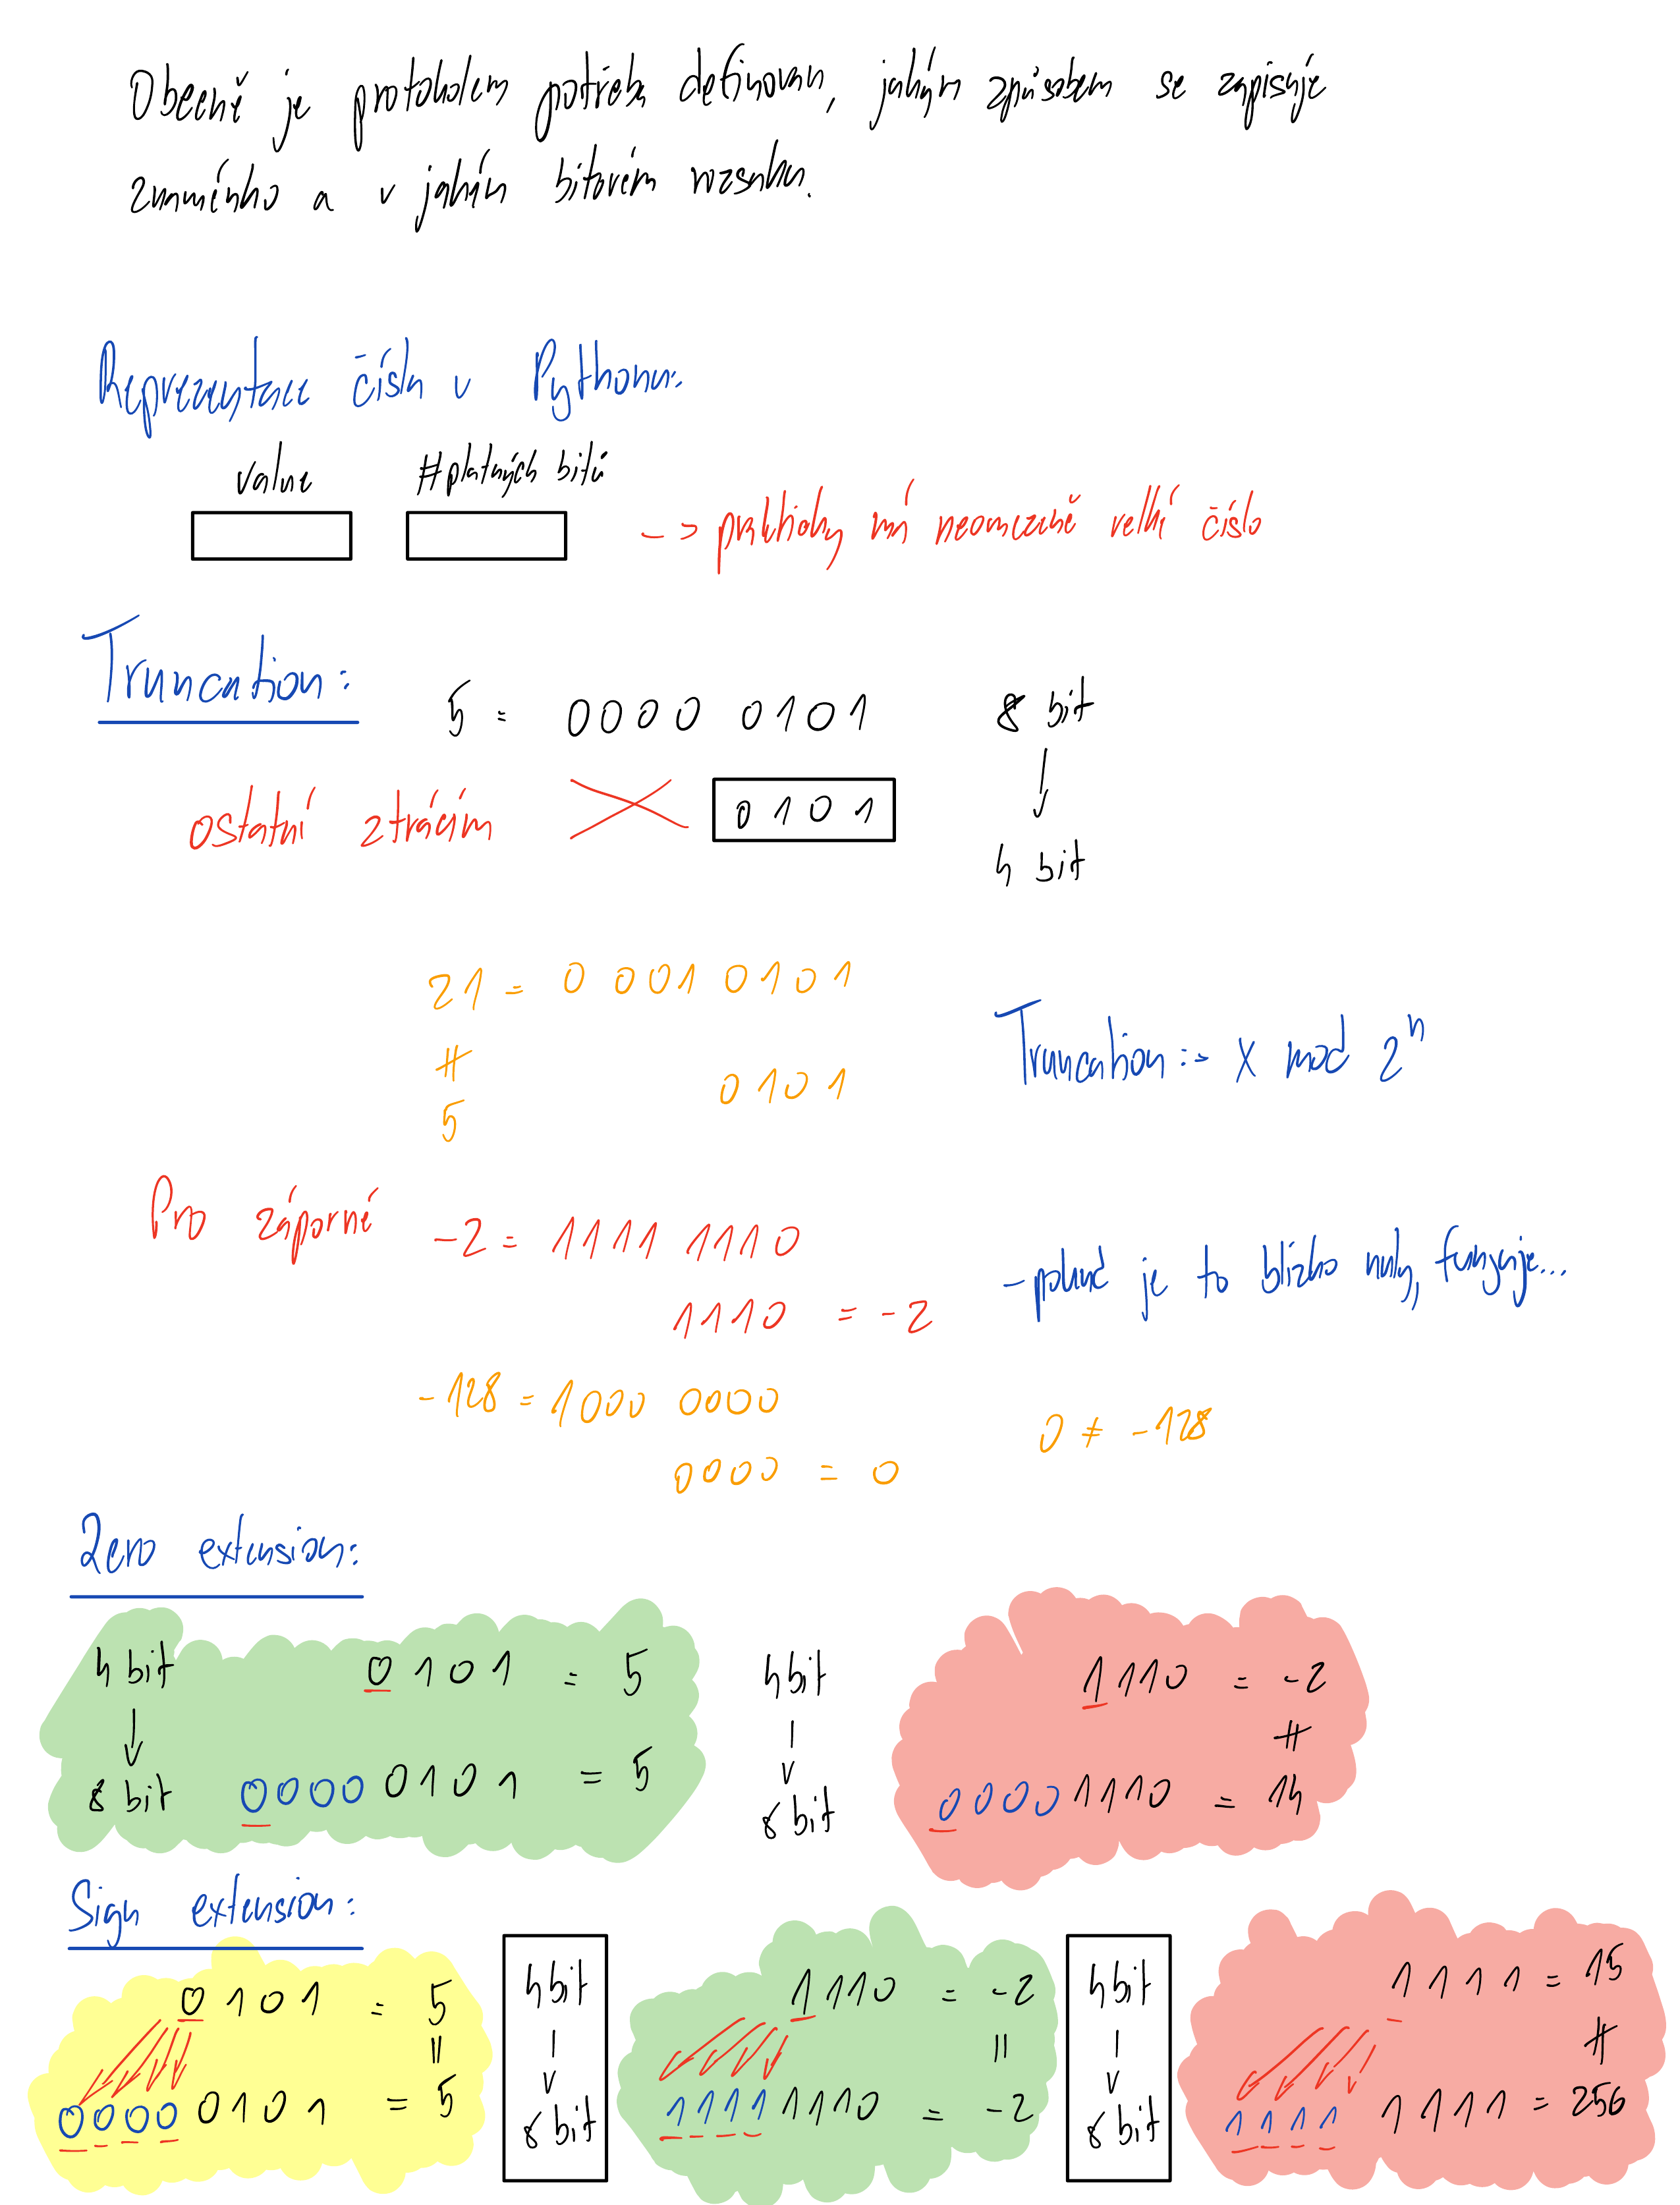 Obecně je protokolem potřeba definovan, jakým způsobem se zapisuje
znaménko a v jakém bitovém rozsahu.
Reprezentace čísla v Pythonu:
value #platných bitů
-> prakticky má neomezeně velké číslo
Truncation:
5 = 0000 0101 8 bit
ostatní ztrácím 0101
4 bit
21 = 0 001 0101
≠ 0101
5
Truncation :-> x mod 2^n
Pro záporné -2 = 1111 1110
1110 = -2
- pokud je to blízko nuly, funguje...
-128 = 1000 0000
0000 = 0
0 ≠ -128
Zero extension:
4 bit 0101 = 5
8 bit 0000 0101 = 5
4 bit
8 bit
1110 = -2
≠
0000 1110 = 14
Sign extension:
0101 = 5
=
0000 0101 = 5
4 bit
8 bit
1110 = -2
=
1111 1110 = -2
4 bit
8 bit
1111 = 15
≠
1111 1111 = 256